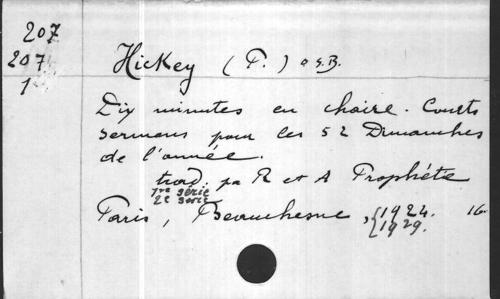 207
207
1
Hickey (P.) o.s.B.
Dix minutes en chaire. Courts
sermons pour les 52 Dimanches
de l'année.
trad. par R et A Prophète
1re série
2e série
Paris, Beauchesne, {1924. 16
{1929.